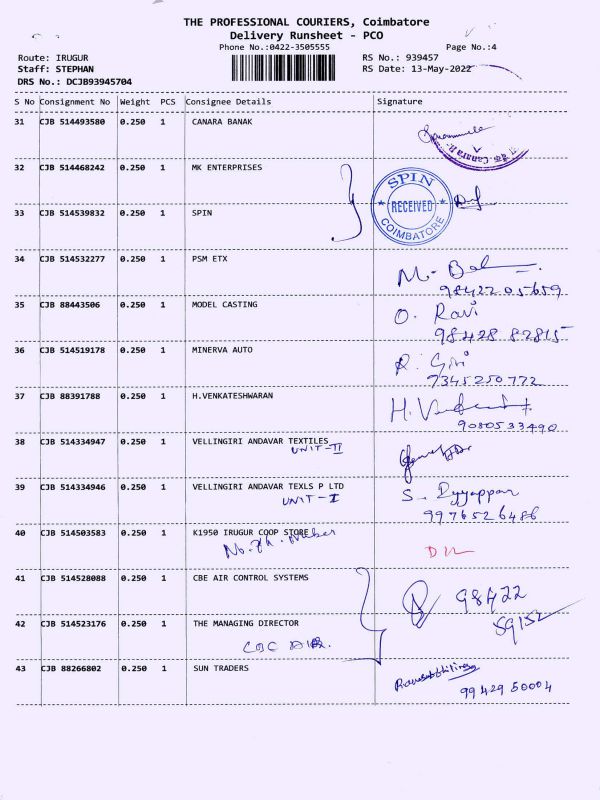 THE PROFESSIONAL COURIERS, Coimbatore
Delivery Runsheet - PCO
Phone No.:0422-3505555
Page No.:4
Route: IRUGUR
RS No.: 939457
Staff: STEPHAN
RS Date: 13-May-2022
DRS No.: DCJB93945704
S No Consignment No Weight PCS Consignee Details Signature
31 CJB 514493580 0.250 1 CANARA BANAK
Canara
32 CJB 514468242 0.250 1 MK ENTERPRISES
SPIN
RECEIVED
COIMBATORE
33 CJB 514539832 0.250 1 SPIN
34 CJB 514532277 0.250 1 PSM ETX
M.
9842205659
35 CJB 88443506 0.250 1 MODEL CASTING
O. Ravi
98428 82815
36 CJB 514519178 0.250 1 MINERVA AUTO
R. Giri
7345250772
37 CJB 88391788 0.250 1 H.VENKATESHWARAN
H.
9080533490
38 CJB 514334947 0.250 1 VELLINGIRI ANDAVAR TEXTILES
UNIT-II
39 CJB 514334946 0.250 1 VELLINGIRI ANDAVAR TEXLS P LTD
UNIT-I
S. Iyyappan
9976526486
40 CJB 514503583 0.250 1 K1950 IRUGUR COOP STORE
No. Ph.
41 CJB 514528088 0.250 1 CBE AIR CONTROL SYSTEMS
98422
59152
42 CJB 514523176 0.250 1 THE MANAGING DIRECTOR
CBC AIR.
43 CJB 88266802 0.250 1 SUN TRADERS
99429 50004